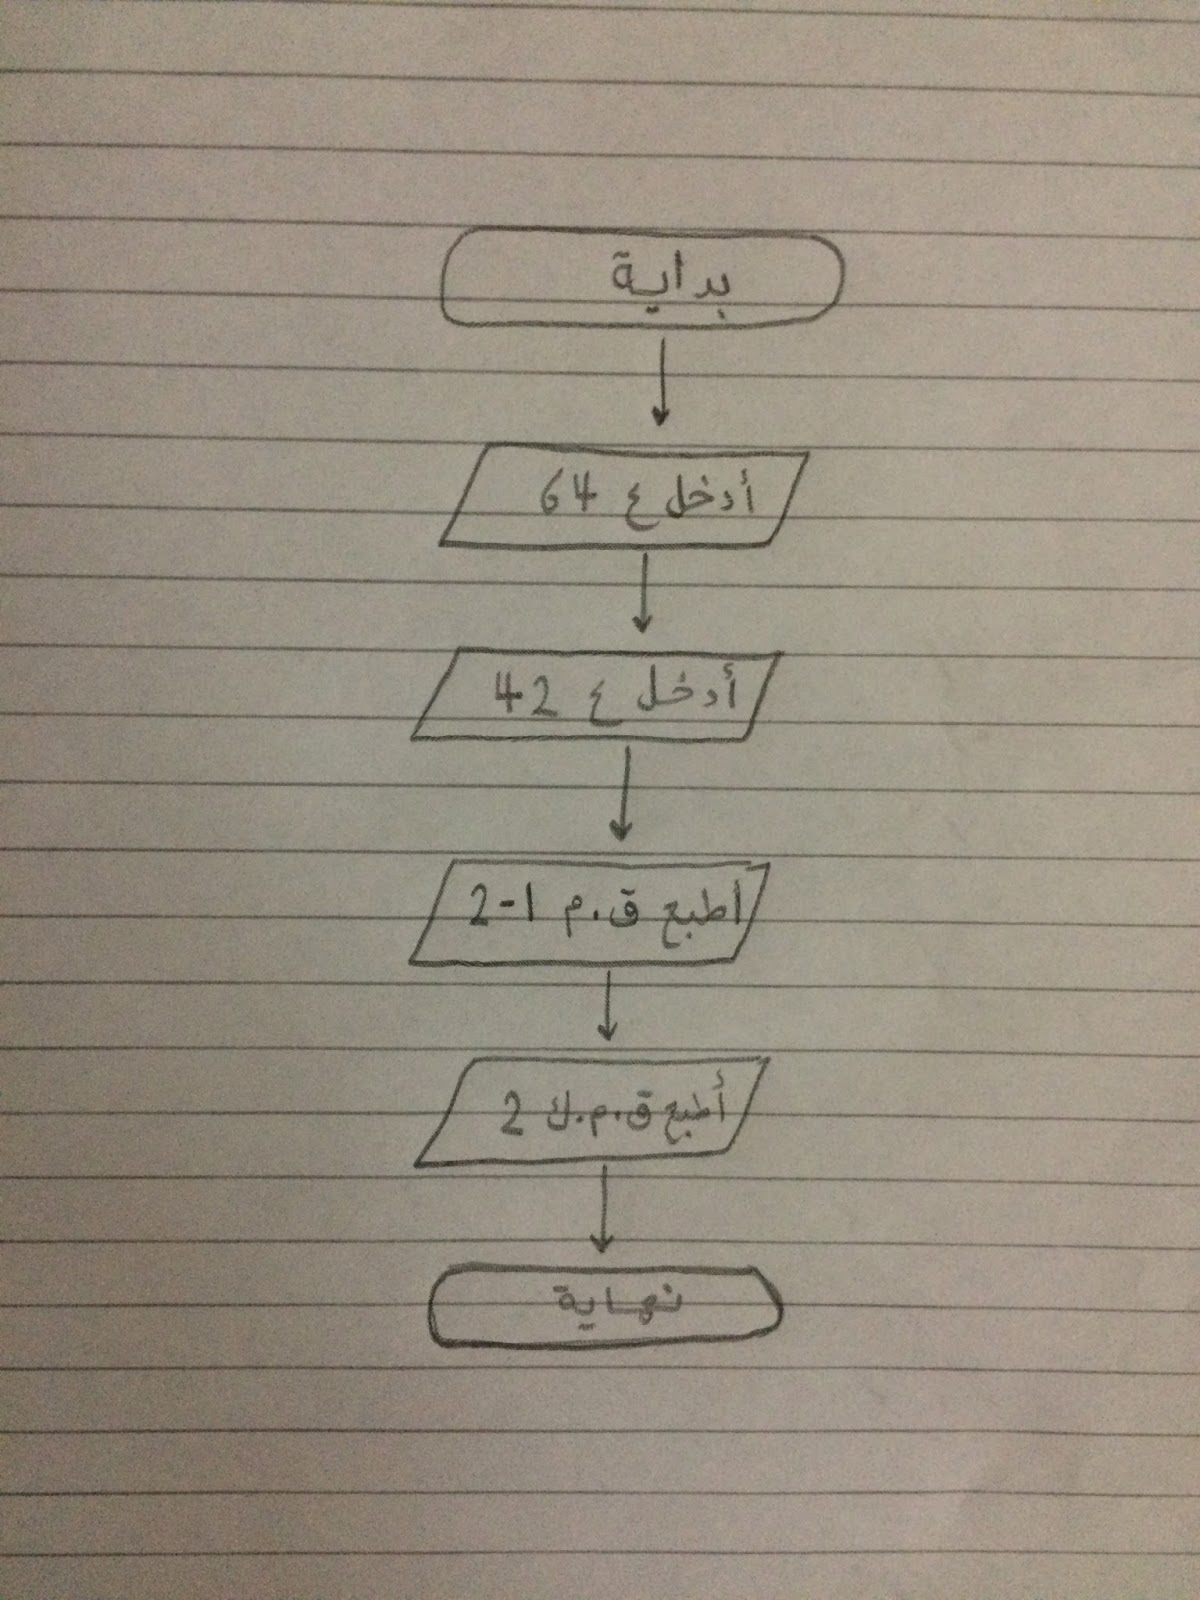 بداية
أدخل ع 64
أدخل ع 42
أطبع ق.م 1-2
أطبع ق.م.ك 2
نهاية